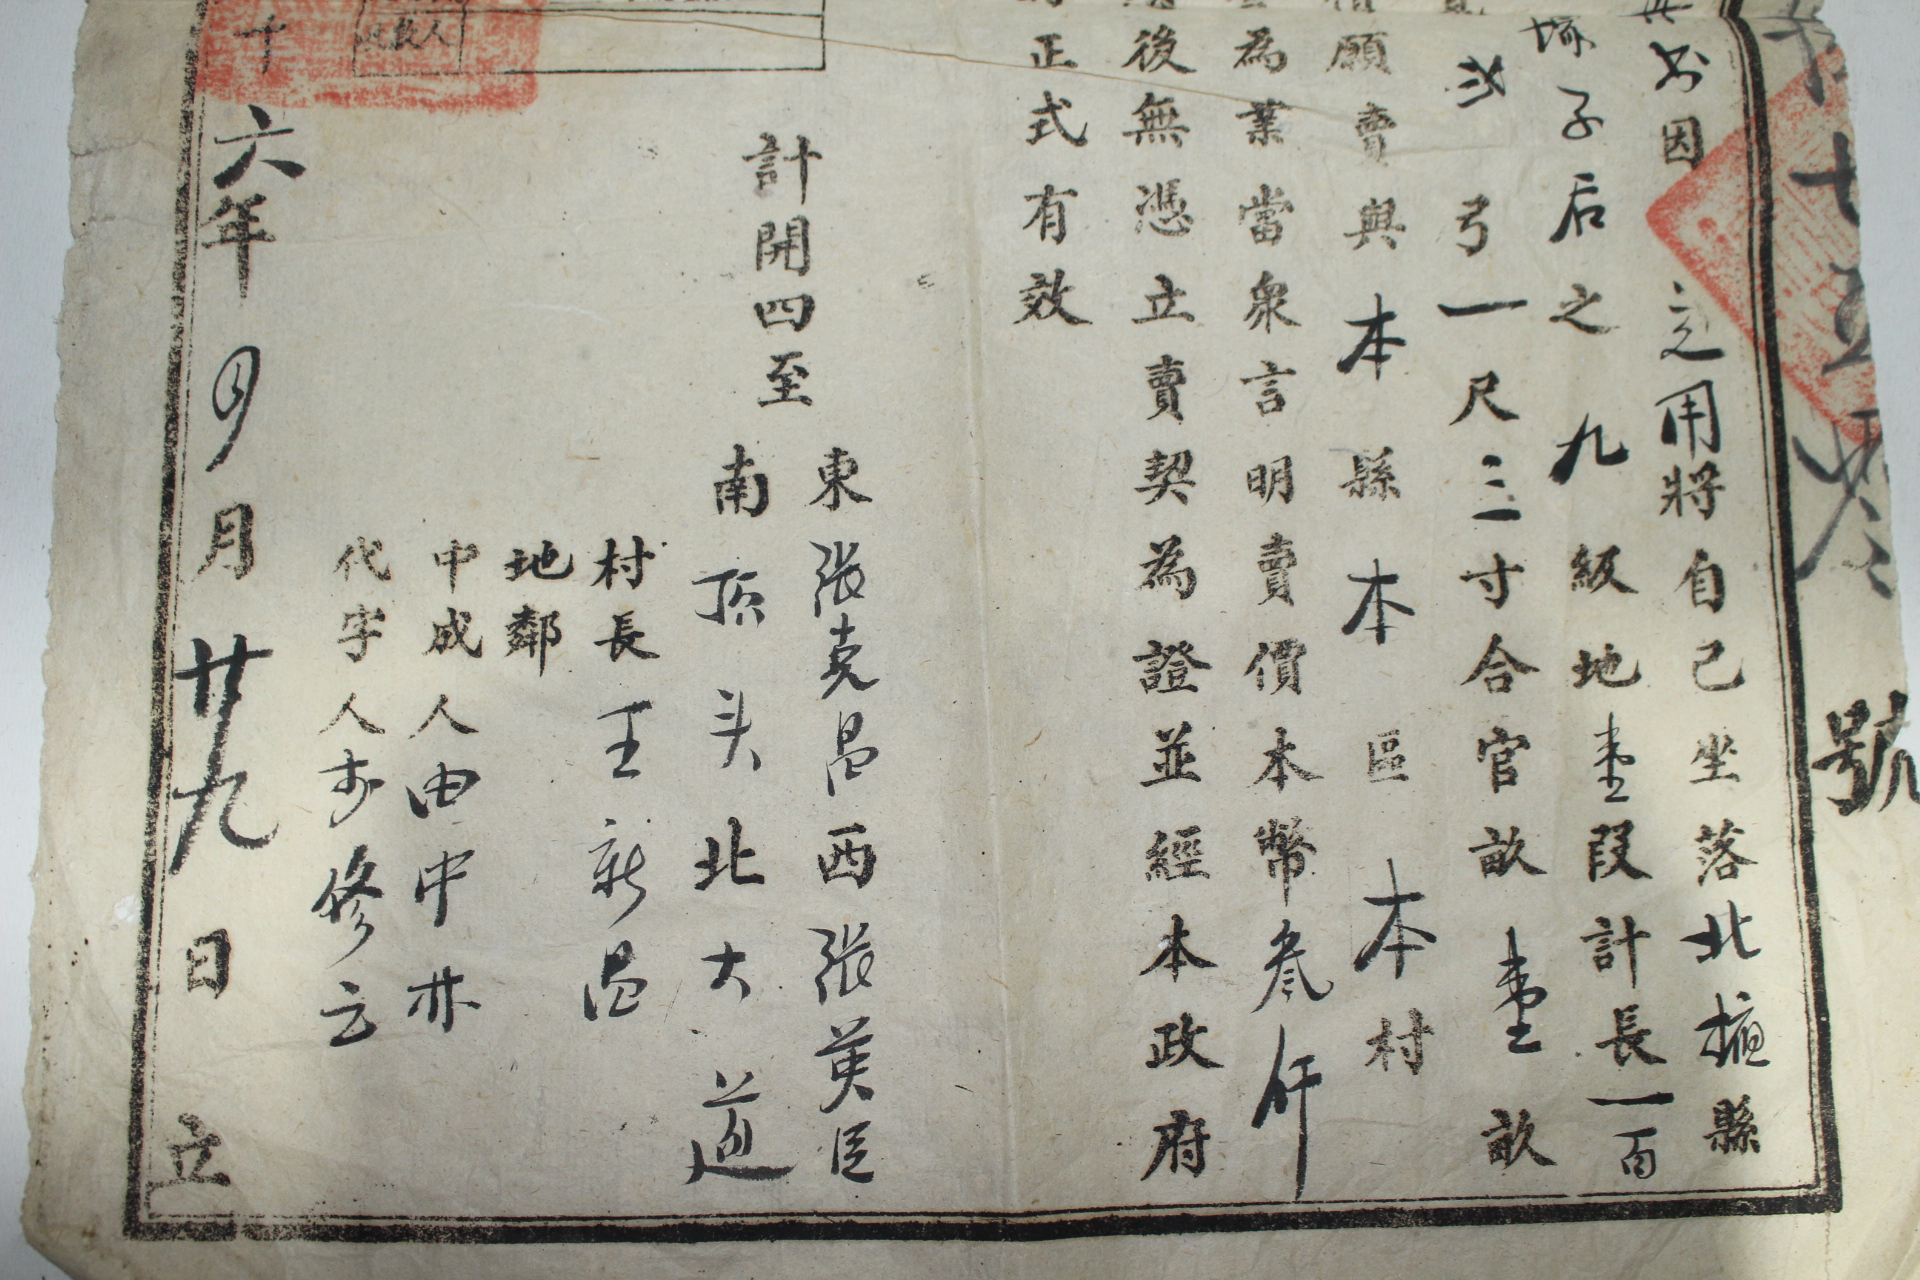 七五 號
因 用將自己坐落北掖縣
子后之九級地壹段計長一百
弓一尺三寸合官畝壹畝
願賣與本縣本區本村
為業當衆言明賣價本幣叁仟
後無憑立賣契為證並經本政府
正式有效
計開四至
東張克昌西張英臣
南頂头北大道
村長王新昌
地鄰
中成人由中林
代字人 修云
六年 月廿九日立